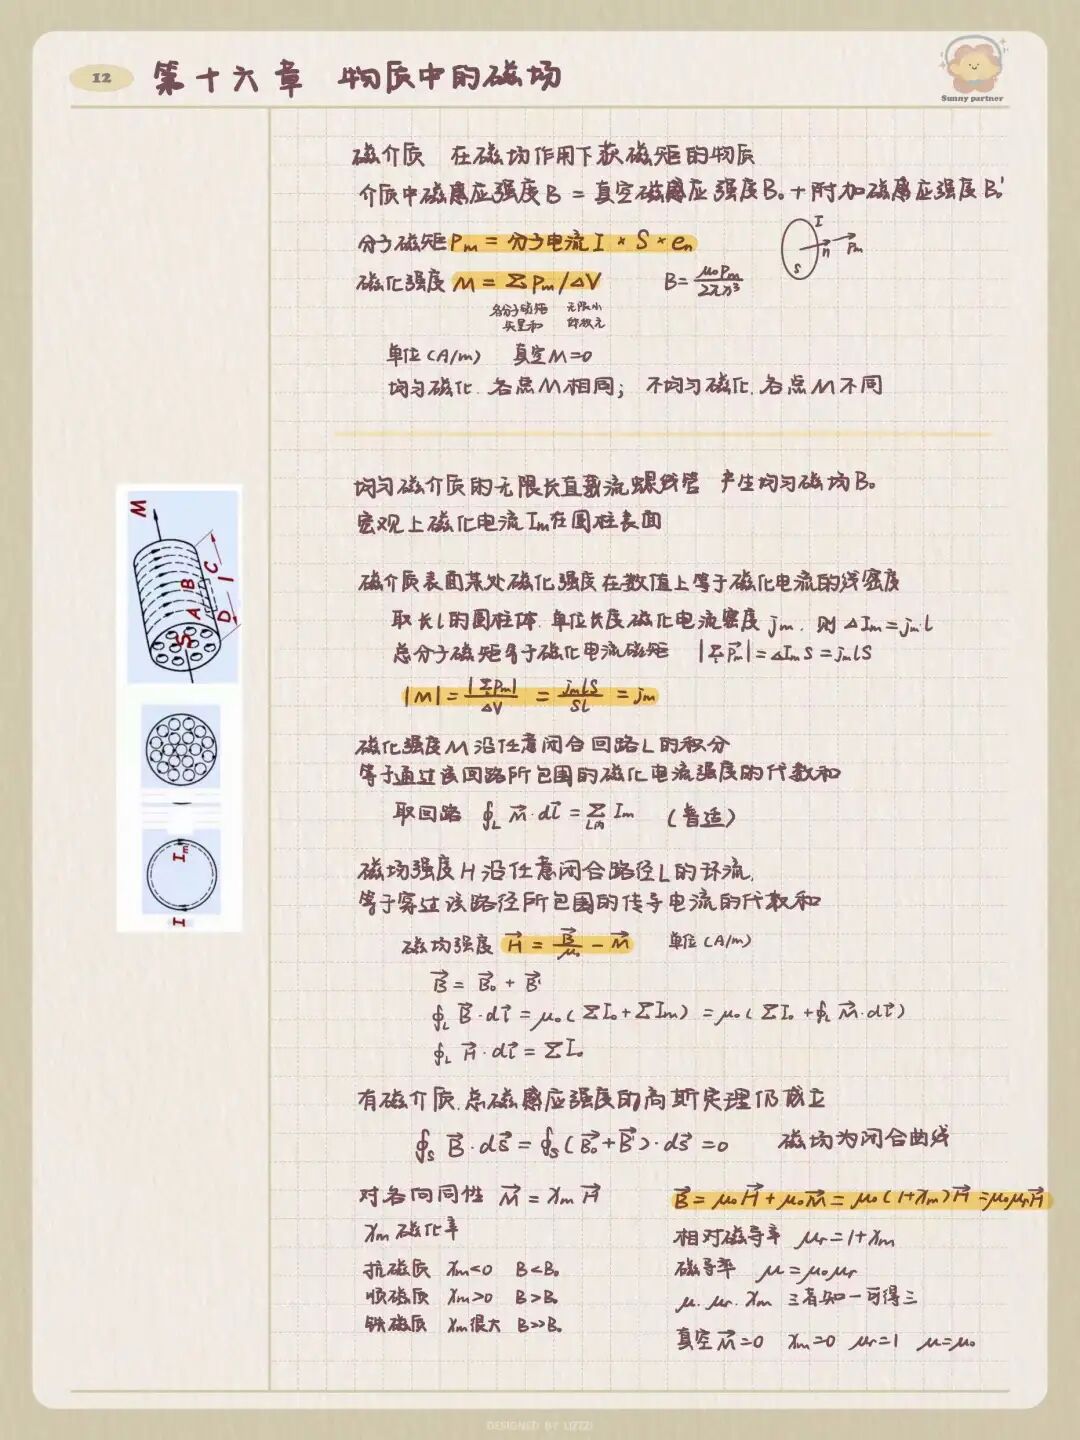 12
第十六章 物质中的磁场
Sunny partner
磁介质 在磁场作用下获磁矩的物质
介质中磁感应强度B = 真空磁感应强度B₀ + 附加磁感应强度B₀'
分子磁矩 Pm = 分子电流 I × S × en
I
n
Pm
S
磁化强度 M = ΣPm/ΔV B = μ₀Pm/2πx³
各分子磁矩 无限小
矢量和 体积元
单位(A/m) 真空M=0
均匀磁化.各点M相同; 不均匀磁化.各点M不同
均匀磁介质的无限长直载流螺线管 产生均匀磁场B₀
宏观上磁化电流Im在圆柱表面
磁介质表面某处磁化强度在数值上等于磁化电流的线密度
取长l的圆柱体.单位长度磁化电流密度jm.则ΔIm=jml
总分子磁矩等于磁化电流磁矩 |ΣP⃗m|=ΔImS=jmlS
|M| = |ΣPm|/ΔV = jmlS/Sl = jm
磁化强度M沿任意闭合回路L的积分
等于通过该回路所包围的磁化电流强度的代数和
取回路 ∮L M⃗·dl⃗ = ΣL内 Im (普适)
磁场强度H沿任意闭合路径L的环流,
等于穿过该路径所包围的传导电流的代数和
磁场强度 H⃗ = B⃗/μ₀ − M⃗ 单位(A/m)
B⃗ = B⃗₀ + B⃗'
∮L B⃗·dl⃗ = μ₀(ΣI₀+ΣIm) = μ₀(ΣI₀+∮L M⃗·dl⃗)
∮L H⃗·dl⃗ = ΣI₀
有磁介质.总磁感应强度的高斯定理仍成立
∮S B⃗·dS⃗ = ∮S(B⃗₀+B⃗')·dS⃗ = 0 磁场为闭合曲线
对各向同性 M⃗ = χmH⃗
χm磁化率
抗磁质 χm<0 B<B₀
顺磁质 χm>0 B>B₀
铁磁质 χm很大 B>>B₀
B⃗ = μ₀H⃗+μ₀M⃗ = μ₀(1+χm)H⃗ = μ₀μrH⃗
相对磁导率 μr=1+χm
磁导率 μ=μ₀μr
μ.μr.χm 三者知一可得三
真空M⃗=0 χm=0 μr=1 μ=μ₀
M
B
C
A
D
l
S
Im
I
DESIGNED BY LIZZZI